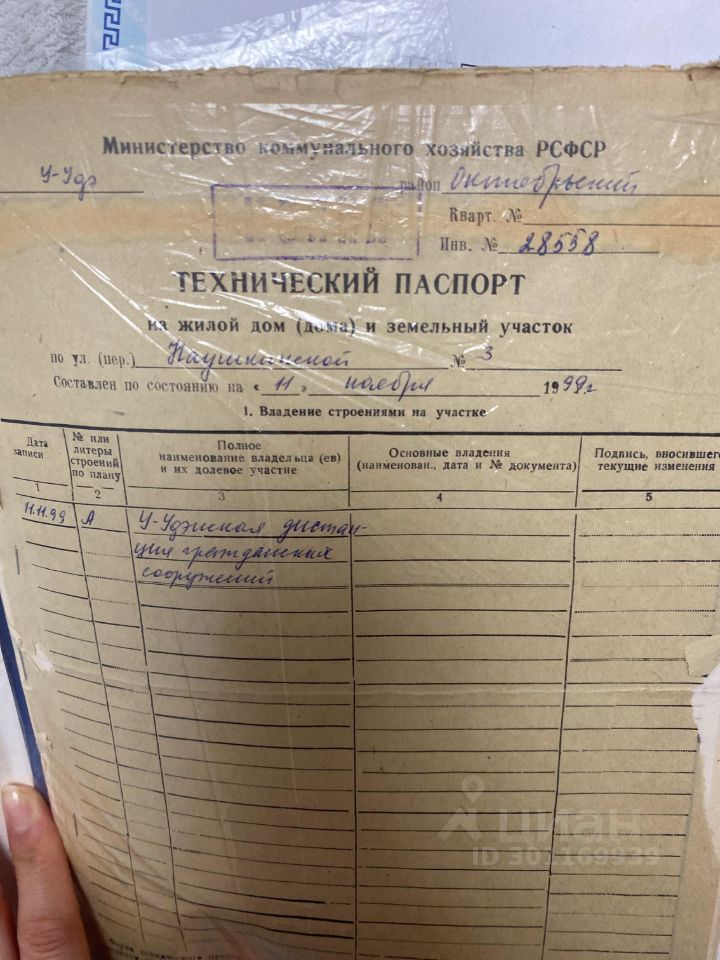 Министерство коммунального хозяйства РСФСР
У-Удэ район Октябрьский
Кварт. №
Инв. № 28558
ТЕХНИЧЕСКИЙ ПАСПОРТ
на жилой дом (дома) и земельный участок
по ул. (пер.) Наушкинской № 3
Составлен по состоянию на «11» ноября 1999 г
1. Владение строениями на участке
Дата записи
№ или литеры строений по плану
Полное наименование владельца (ев) и их долевое участие
Основные владения (наименован., дата и № документа)
Подпись, вносившего текущие изменения
1 2 3 4 5
11.11.99 А У-Удэнская дистан-
ция гражданских
сооружений
циан
ID 303169939